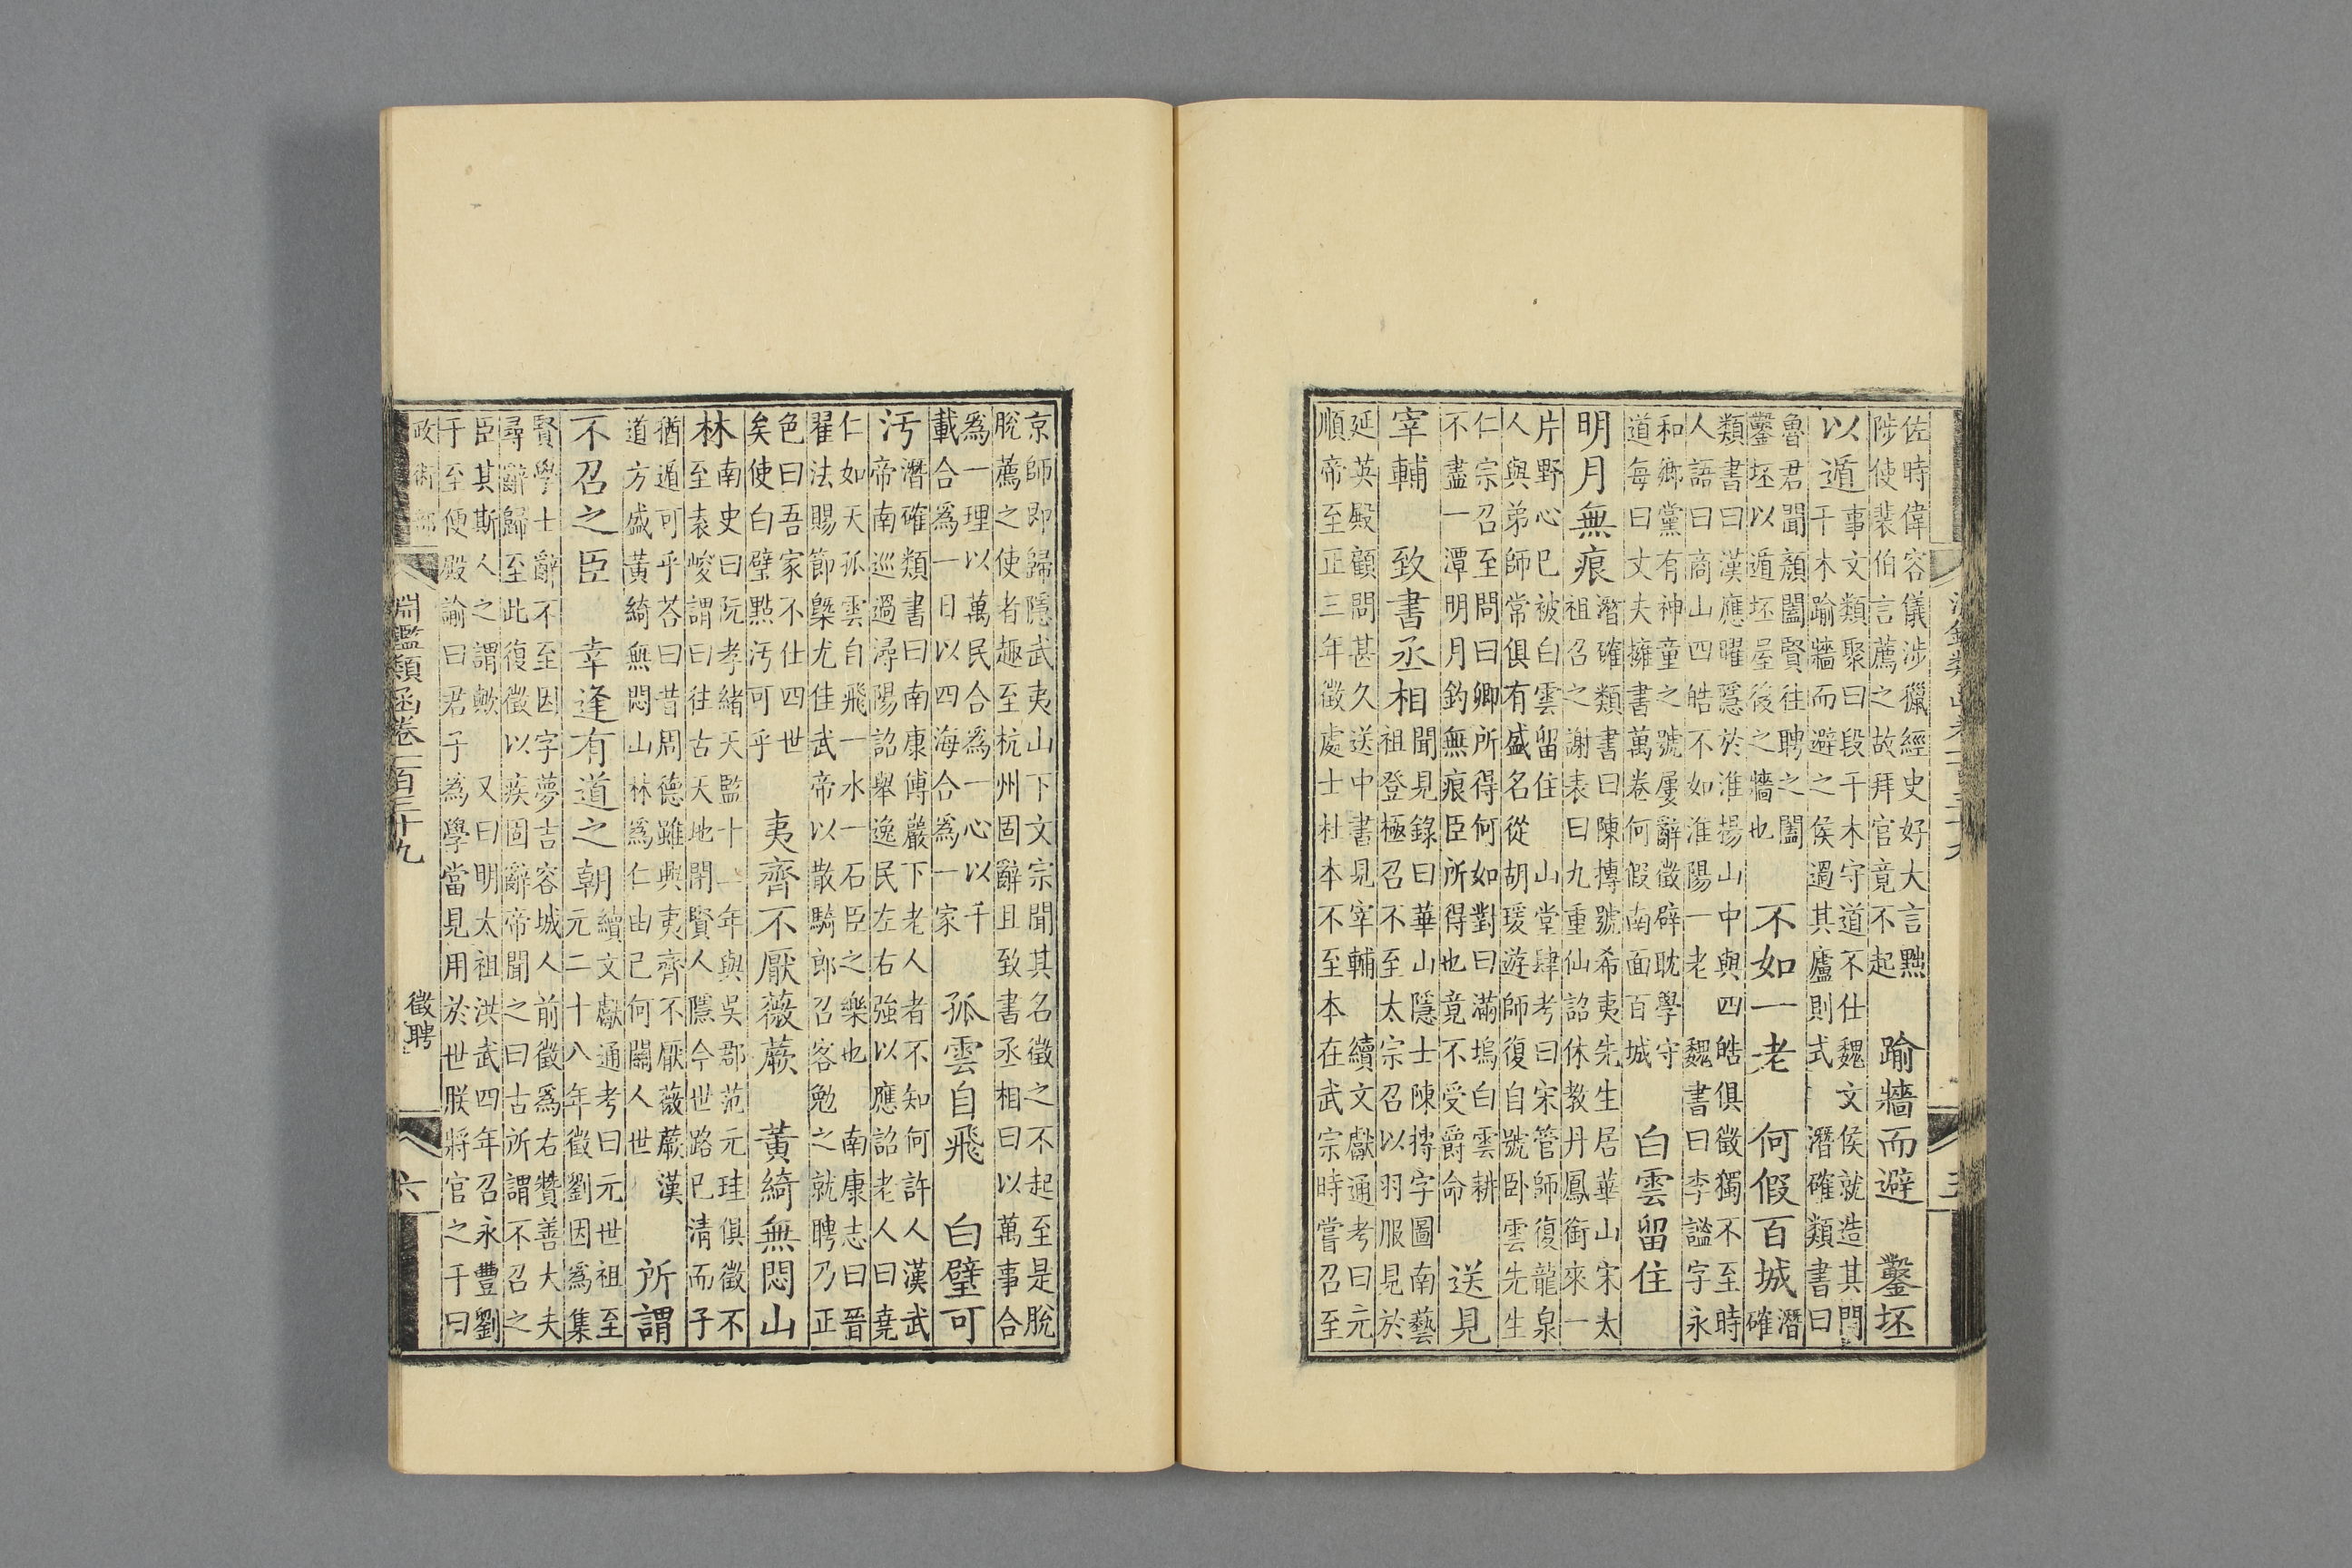 佐時偉容儀涉獵經史好大言黠
陟使裴伯言薦之故拜官竟不起
踰牆而避 鑿坯
以遁
事文類聚曰段干木守道不仕魏文侯就造其門
干木踰牆而避之侯過其廬則式 潛確類書曰
魯君聞顏闔賢往聘之闔
鑿坯以遁坯屋後之牆也
不如一老 何假百城
潛
確
類書曰漢應曜隱於淮揚山中與四皓俱徵獨不至時
人語曰商山四皓不如淮陽一老 魏書曰李謐字永
和鄉黨有神童之號屢辭徵辟耽學守
道每曰丈夫擁書萬卷何假南面百城
白雲留住
明月無痕
潛確類書曰陳摶號希夷先生居華山宋太
祖召之謝表曰九重仙詔休教丹鳳銜來一
片野心已被白雲留住 山堂肆考曰宋管師復龍泉
人與弟師常俱有盛名從胡瑗遊師復自號卧雲先生
仁宗召至問曰卿所得何如對曰滿塢白雲耕
不盡一潭明月釣無痕臣所得也竟不受爵命
送見
宰輔 致書丞相
聞見錄曰華山隱士陳摶字圖南藝
祖登極召不至太宗召以羽服見於
延英殿顧問甚久送中書見宰輔 續文獻通考曰元
順帝至正三年徵處士杜本不至本在武宗時嘗召至
京師即歸隱武夷山下文宗聞其名徵之不起至是脫
脫薦之使者趣至杭州固辭且致書丞相曰以萬事合
為一理以萬民合為一心以千
載合為一日以四海合為一家
孤雲自飛 白璧可
汙
潛確類書曰南康傅巖下老人者不知何許人漢武
帝南巡過潯陽詔舉逸民左右強以應詔老人曰堯
仁如天孤雲自飛一水一石臣之樂也 南康志曰晉
翟法賜節槩尤佳武帝以散騎郎召客勉之就聘乃正
色曰吾家不仕四世
矣使白璧點汙可乎
夷齊不厭薇蕨 黃綺無悶山
林
南史曰阮孝緒天監十二年與吳郡范元珪俱徵不
至袁峻謂曰往古天地閉賢人隱今世路已清而子
猶遁可乎荅曰昔周德雖興夷齊不厭薇蕨漢
道方盛黃綺無悶山林為仁由己何關人世
所謂
不召之臣 幸逢有道之朝
續文獻通考曰元世祖至
元二十八年徵劉因為集
賢學士辭不至因字夢吉容城人前徵為右贊善大夫
尋辭歸至此復徵以疾固辭帝聞之曰古所謂不召之
臣其斯人之謂歟 又曰明太祖洪武四年召永豐劉
于至便殿諭曰君子為學當見用於世朕將官之于曰
政術部 淵鑑類函卷一百三十九 徵聘 六